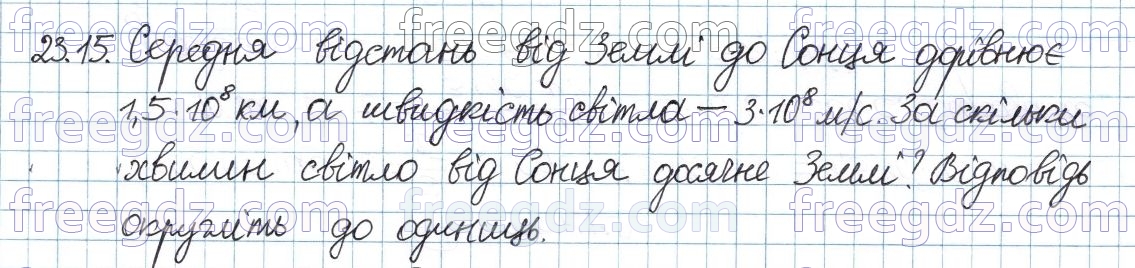 23.15. Середня відстань від Землі до Сонця дорівнює
1,5·10⁸ км, а швидкість світла – 3·10⁸ м/с. За скільки
хвилин світло від Сонця досягне Землі? Відповідь
округліть до одиниць.
freegdz.com freegdz.com freegdz.com freegdz.com
freegdz.com freegdz.com freegdz.com freegdz.com
freegdz.com freegdz.com freegdz.com freegdz.com